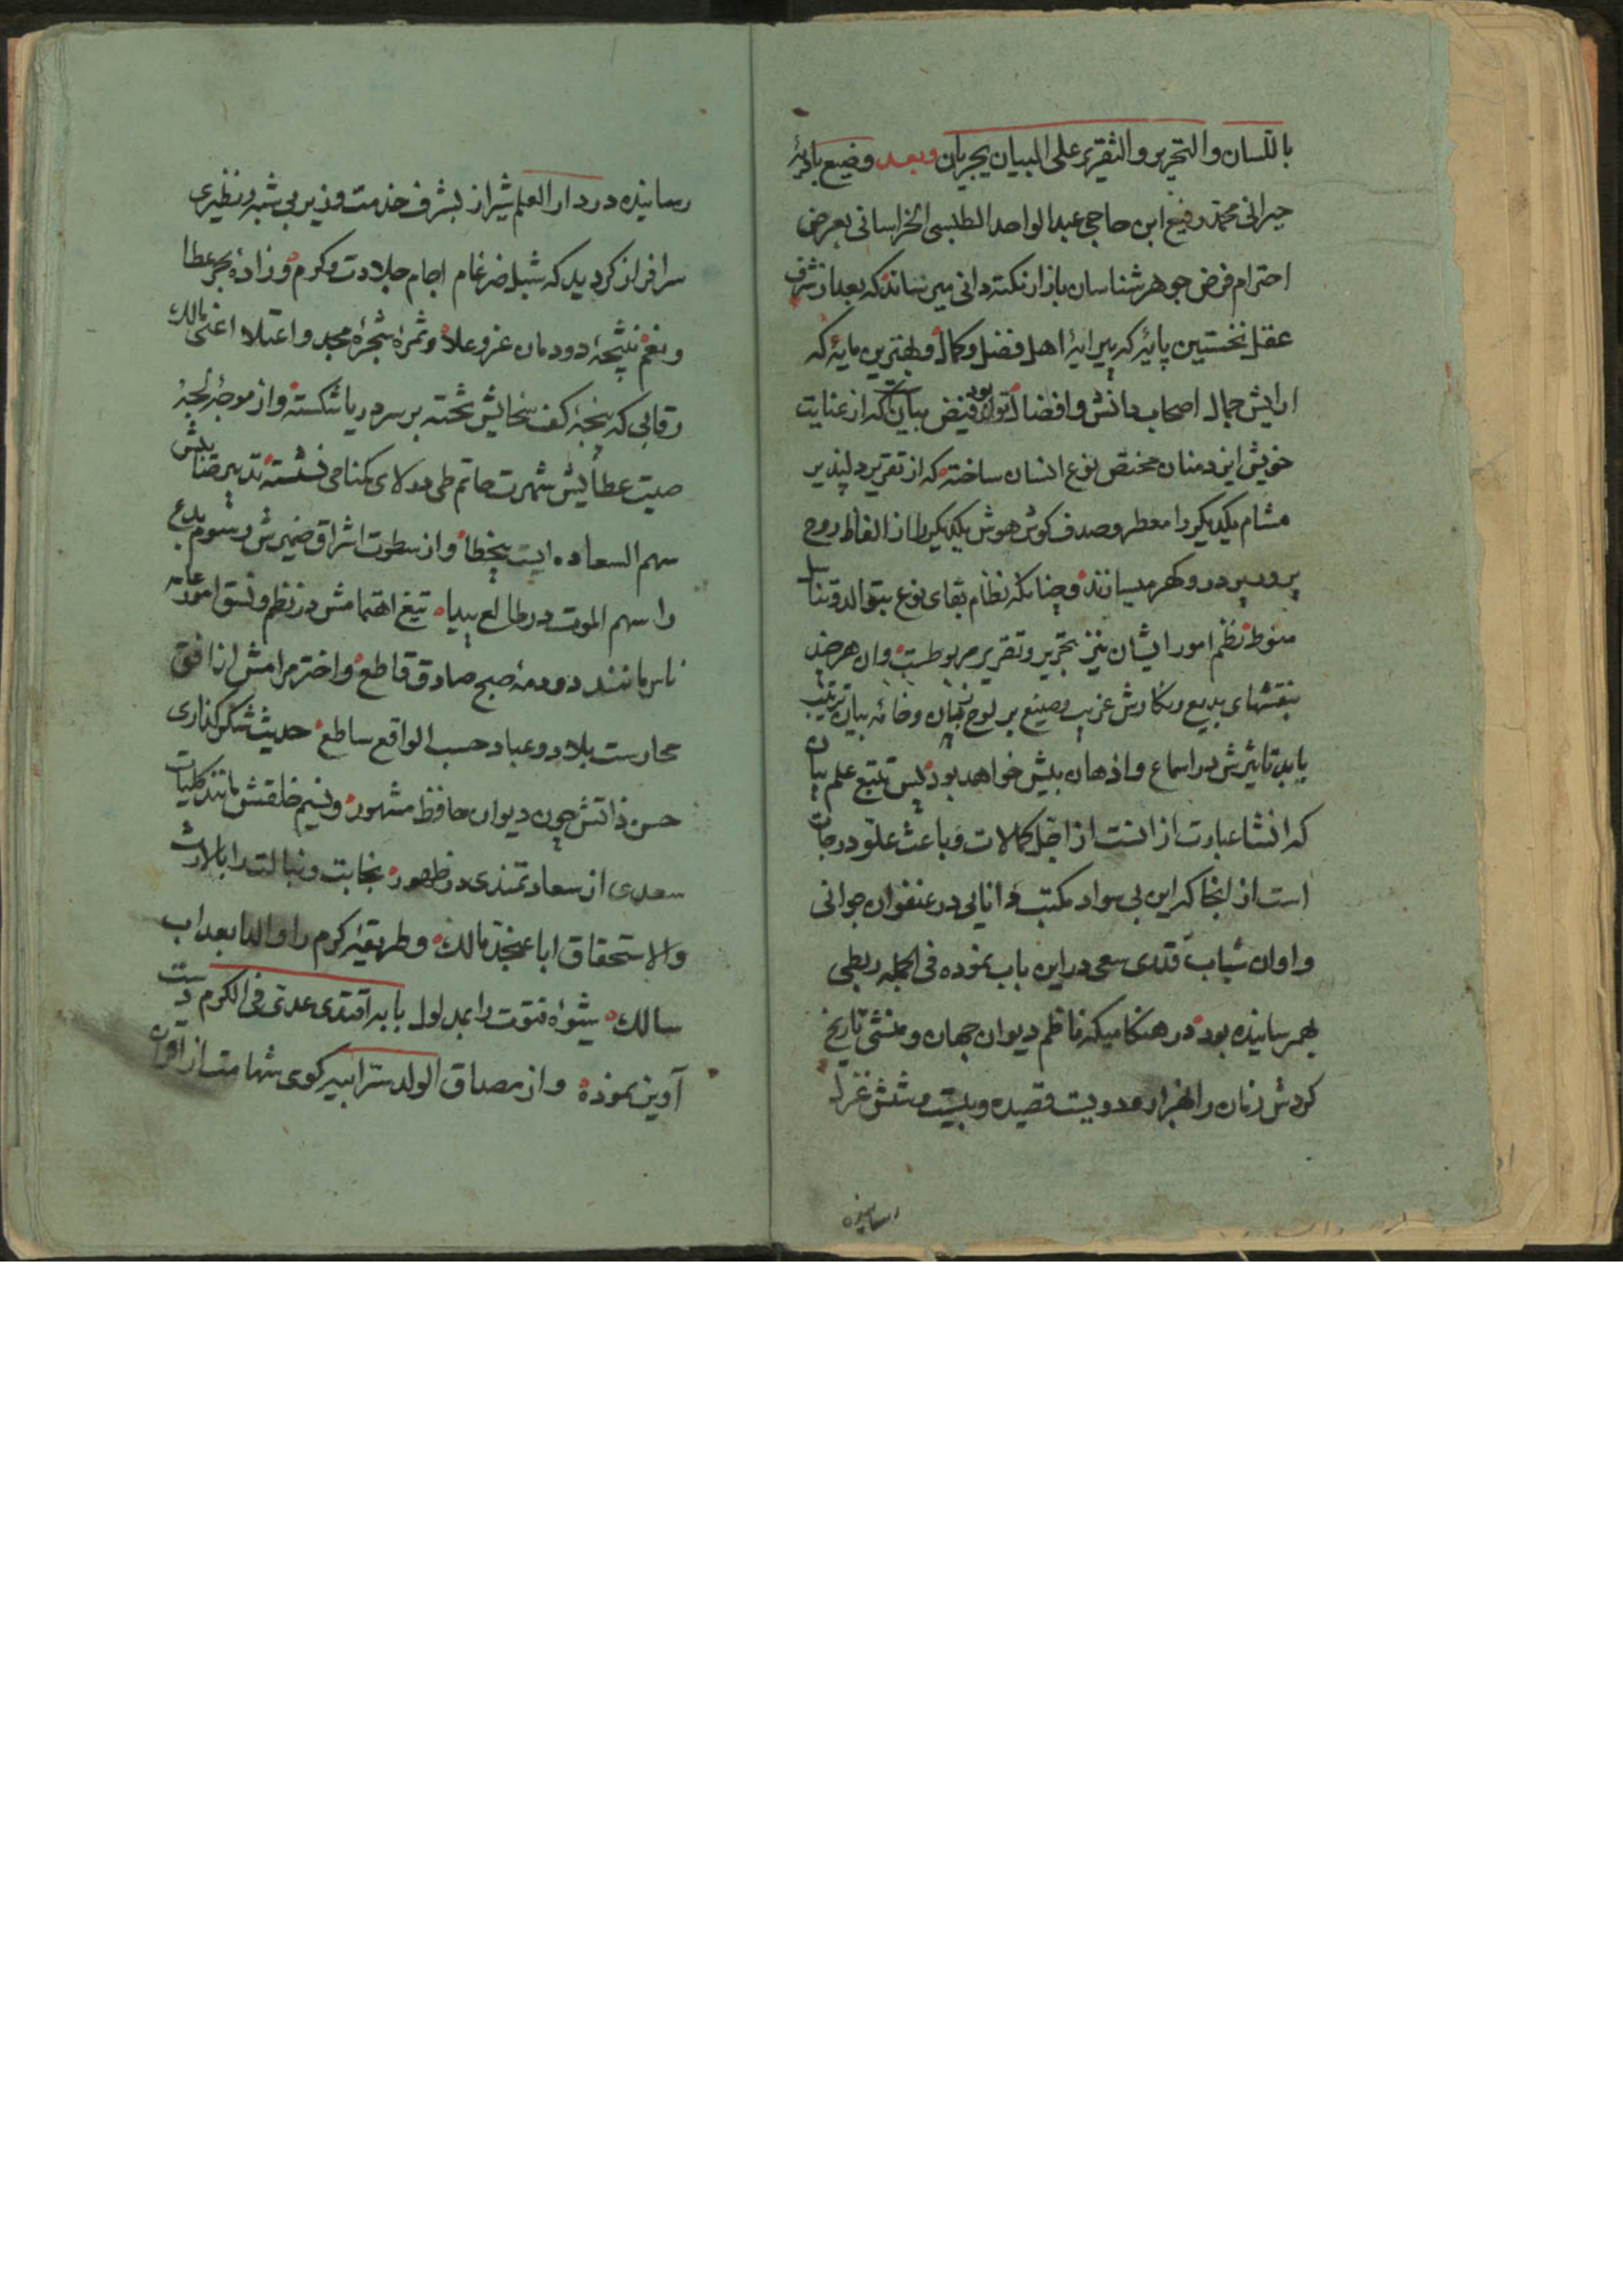 باللسان و التحریر و التقریر علی البیان یجریان و بعد وضیع بادیهٔ
حیرانی محمد رفیع ابن حاجی عبدالواحد الطبسی الخراسانی بعرض
احترام فرض جوهر شناسان بازار نکته دانی میرساند که بعد از شرف
عقل نخستین پایهٔ که پیرایهٔ اهل فضل و کمال و بهترین مایهٔ که
ارایش جمال اصحاب دانش و افضال تواند بود فیض بیانست که از عنایت
خویش ایزد منان مختص نوع انسان ساخته که از تقریر دلپذیر
مشام یکدیکر را معطر و صدف کوش هوش یکدیکر را از الفاظ روح
پرور پر در و کهر میسازند و چنانکه نظام بقای نوع بتوالد و تناسل
منوط نظم امور ایشان نیز بتحریر و تقریر مربوطست و ان هر چند
بنقشهای بدیع و نکارش غریب و صنیع بر لوح بیان و خامه بیان ترتیب
یابد تاثیرش در اسماع و اذهان بیش خواهد بود پس تتبع علم بیان
که انشا عبارت از انست از اجل کمالات و باعث علو درجات
است از انجا که این بی سواد مکتب دانایی در عنفوان جوانی
و اوان شباب قدری سعی در این باب نموده فی الجمله ربطی
بهم رسانیده بود در هنکامیکه ناظم دیوان جهان و منشی تاریخ
کردش زمان را بهزار و دویست قصیده و بیست و شش غزل
رسانیده
رسانیده در دار العلم شیراز بشرف خدمت وزیر بی شبه و نظیری
سرافراز کردید که شبل ضرغام اجام جلادت و کرم و زادهٔ بحر عطا
و نعم نتیجهٔ دودمان عز و علا و ثمرهٔ شجرهٔ مجد و اعتلا اعنی مالک
رقابی که پنجهٔ کف سخایش تخته بر سر دریا شکسته و از موجهٔ لجهٔ
صیت عطایش شهرت حاتم طی در لای کمنامی نشسته تدبیر صایبش
سهم السعاده ایست بیخطا و از سطوت اشراق ضمیرش رسوم بدع
را سهم الموت در طالع پیدا تیغ اهتمامش در نظم و نسق امور عامه
ناس مانند دودمهٔ صبح صادق قاطع و اختر مرامش از افق
حارست بلاد و عباد حسب الواقع ساطع حدیث شکر کذاری
حسن ذاتش چون دیوان حافظ مشهور و نسیم خلقش مانند کلیات
سعدی از سعادتمندی در ظهور نجابت و نبالت را بالارث
والاستحقاق ابا عنجد مالک و طریقهٔ کرم را والدا بعد اب
سالک شیوهٔ فتوت را بمدلول بابه اقتدی عدی فی الکرم دست
آویز نموده و از مصداق الولد سر ابیه کوی شهامت از اقران